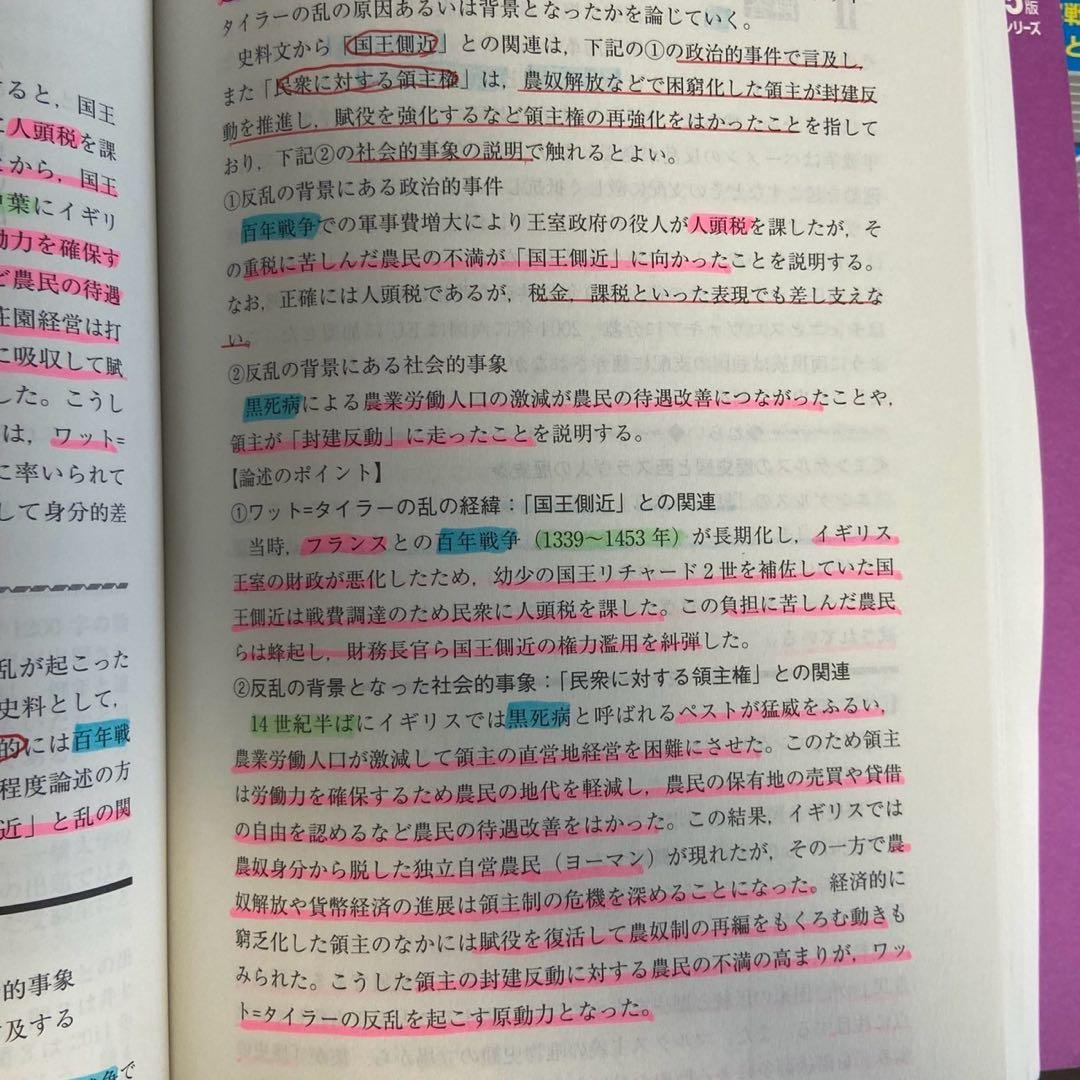 ると，国王
人頭税を課
から，国王
葉にイギリ
動力を確保す
ど農民の待遇
荘園経営は打
に吸収して賦
した。こうし
は，ワット=
に率いられて
して身分的差
乱が起こった
史料として，
的には百年戦
程度論述の方
近」と乱の関
的事象
及する
タイラーの乱の原因あるいは背景となったかを論じていく。
史料文から「国王側近」との関連は，下記の①の政治的事件で言及し，
また「民衆に対する領主権」は，農奴解放などで困窮化した領主が封建反
動を推進し，賦役を強化するなど領主権の再強化をはかったことを指して
おり，下記②の社会的事象の説明で触れるとよい。
①反乱の背景にある政治的事件
百年戦争での軍事費増大により王室政府の役人が人頭税を課したが，そ
の重税に苦しんだ農民の不満が「国王側近」に向かったことを説明する。
なお，正確には人頭税であるが，税金，課税といった表現でも差し支えな
い。
②反乱の背景にある社会的事象
黒死病による農業労働人口の激減が農民の待遇改善につながったことや，
領主が「封建反動」に走ったことを説明する。
【論述のポイント】
①ワット=タイラーの乱の経緯：「国王側近」との関連
当時，フランスとの百年戦争（1339〜1453年）が長期化し，イギリス
王室の財政が悪化したため，幼少の国王リチャード2世を補佐していた国
王側近は戦費調達のため民衆に人頭税を課した。この負担に苦しんだ農民
らは蜂起し，財務長官ら国王側近の権力濫用を糾弾した。
②反乱の背景となった社会的事象：「民衆に対する領主権」との関連
14世紀半ばにイギリスでは黒死病と呼ばれるペストが猛威をふるい，
農業労働人口が激減して領主の直営地経営を困難にさせた。このため領主
は労働力を確保するため農民の地代を軽減し，農民の保有地の売買や貸借
の自由を認めるなど農民の待遇改善をはかった。この結果，イギリスでは
農奴身分から脱した独立自営農民（ヨーマン）が現れたが，その一方で農
奴解放や貨幣経済の進展は領主制の危機を深めることになった。経済的に
窮乏化した領主のなかには賦役を復活して農奴制の再編をもくろむ動きも
みられた。こうした領主の封建反動に対する農民の不満の高まりが，ワッ
ト=タイラーの反乱を起こす原動力となった。
版
シリーズ